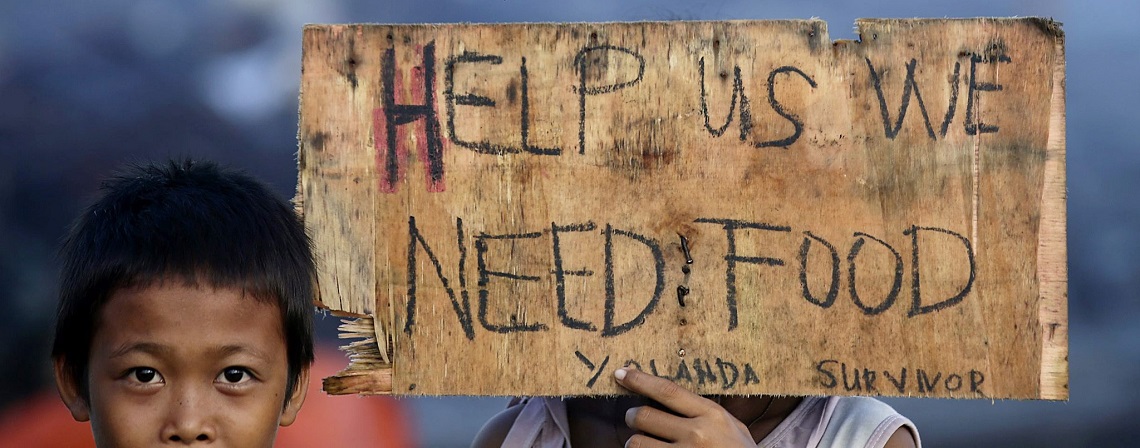 HELP US WE
NEED FOOD
YOLANDA SURVIVOR